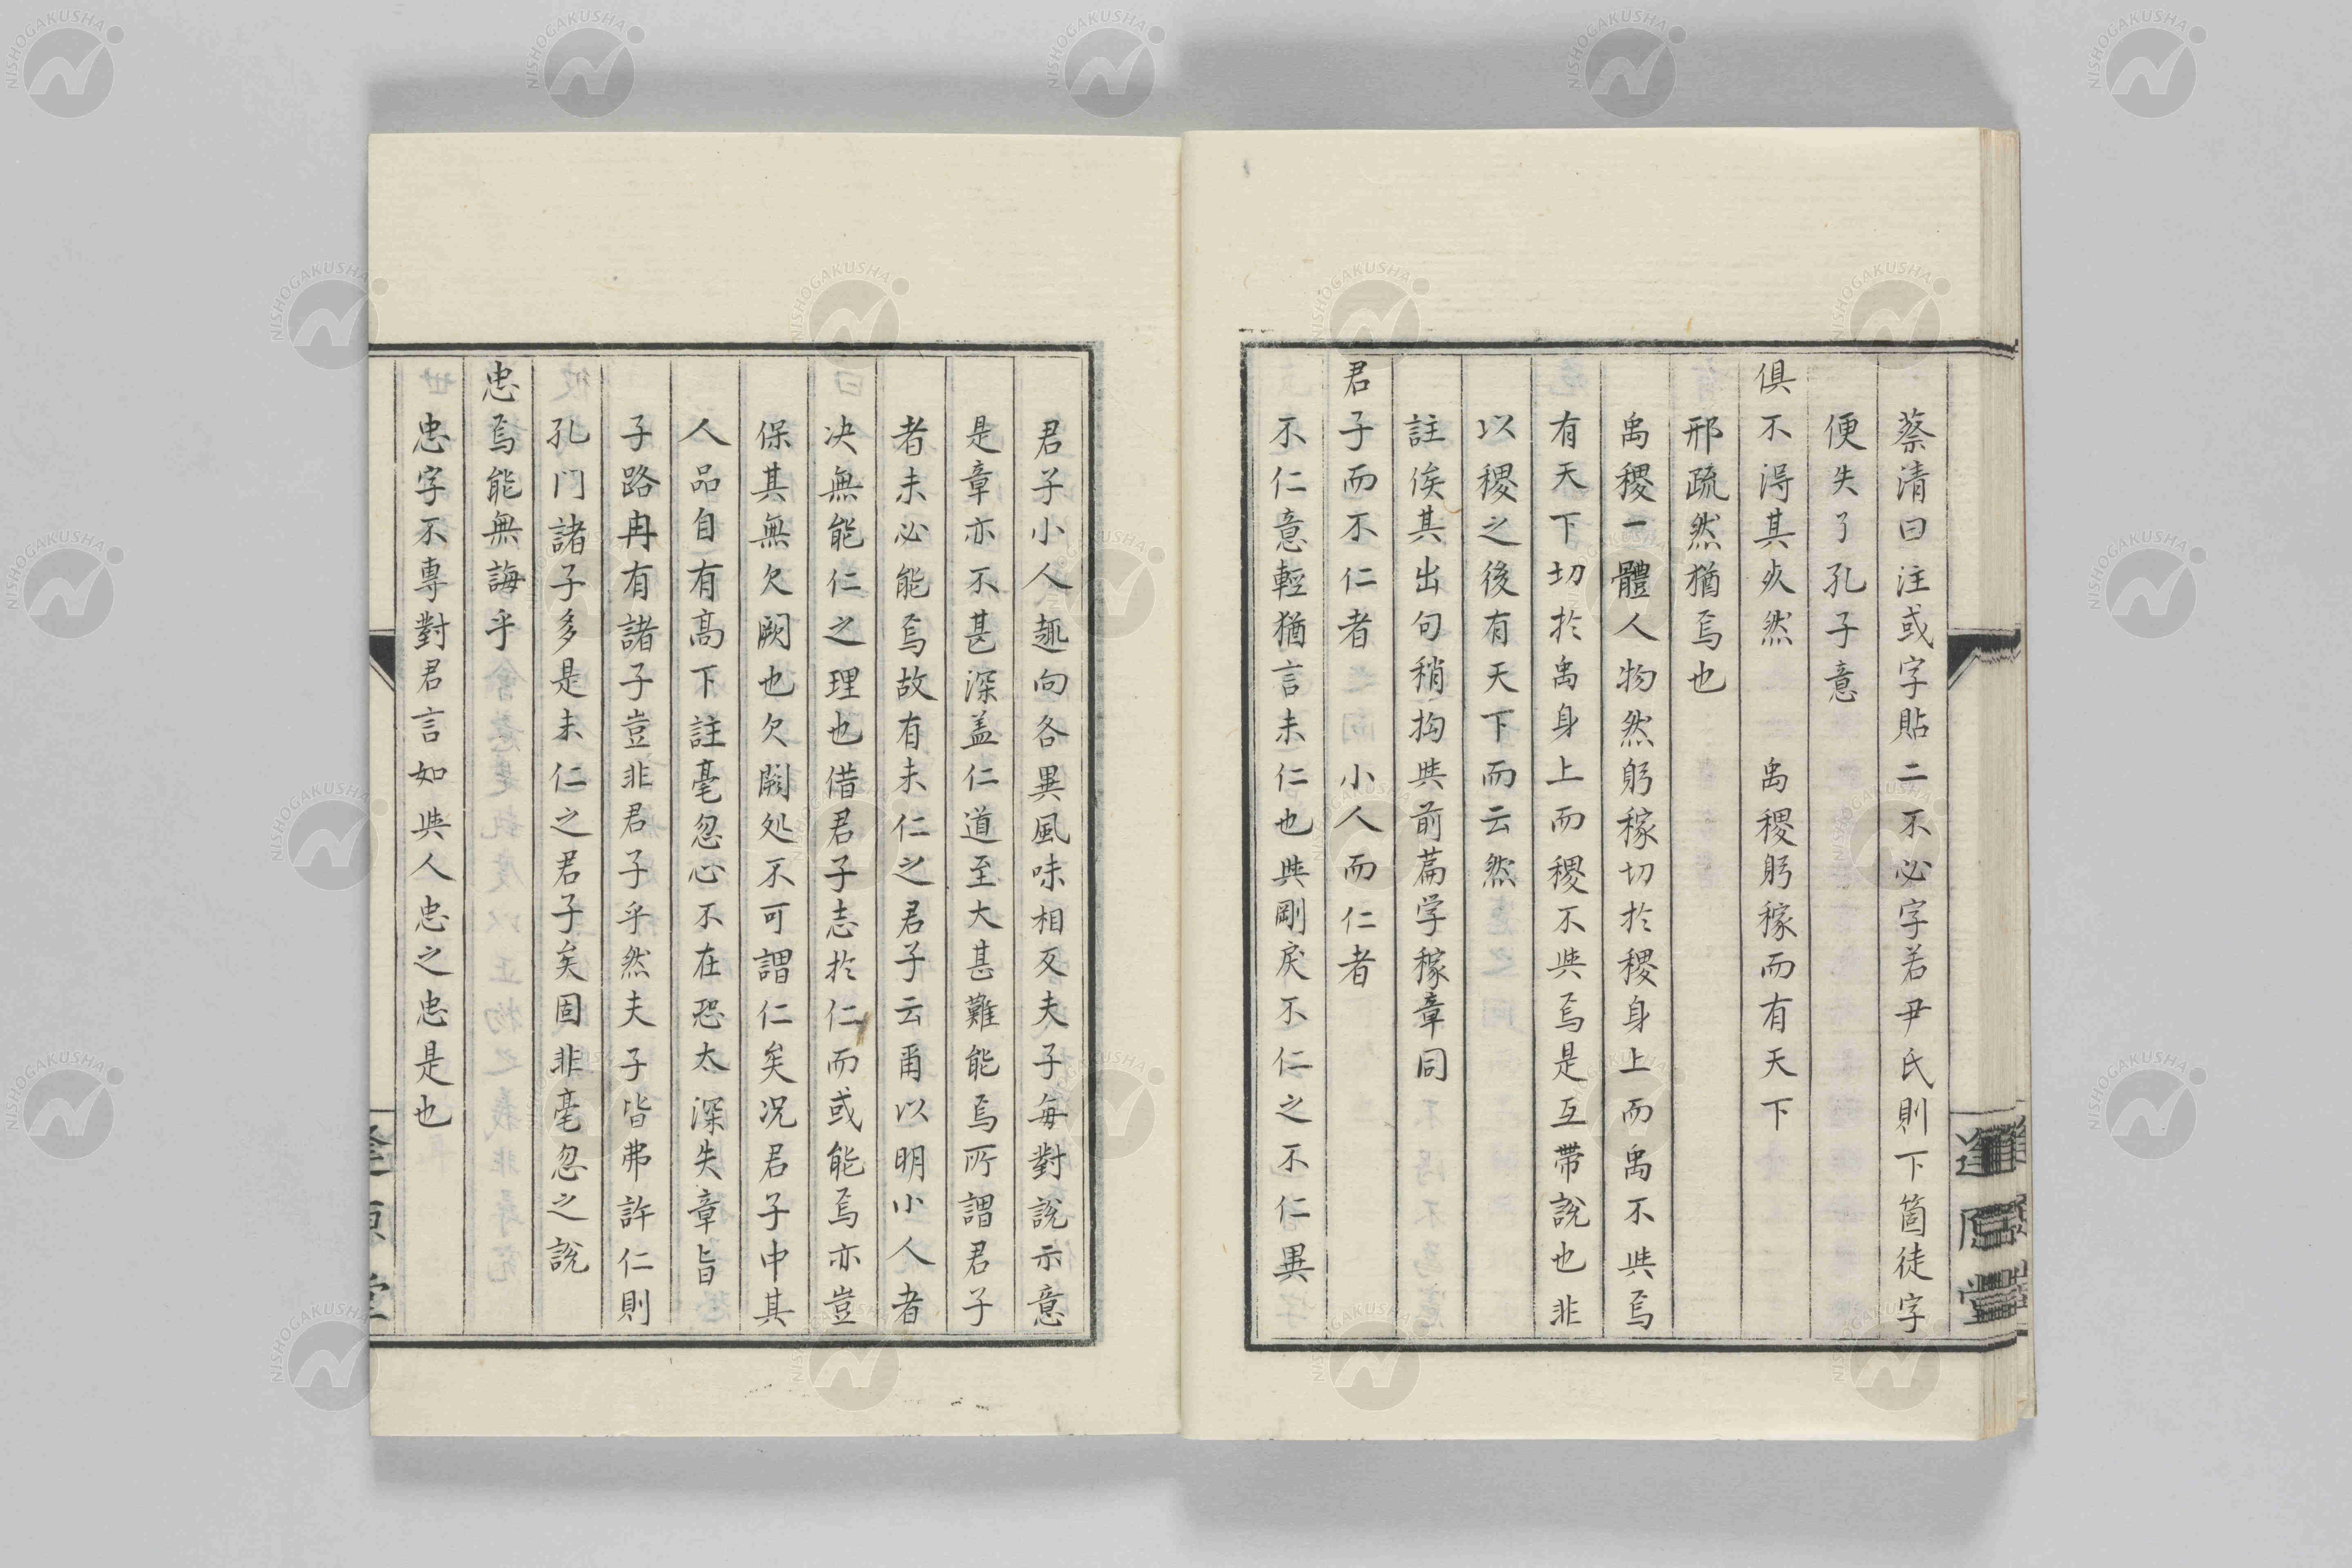 蔡清曰注或字貼二不必字若尹氏則下箇徒字
便失了孔子意
俱不得其死然　禹稷躬稼而有天下
邢疏然猶焉也
禹稷一體人物然躬稼切於稷身上而禹不與焉
有天下切於禹身上而稷不與焉是互帶說也非
以稷之後有天下而云然
註俟其出句稍拘與前篇学稼章同
君子而不仁者　小人而仁者
不仁意輕猶言未仁也與剛戾不仁之不仁異
君子小人趣向各異風味相反夫子每對說示意
是章亦不甚深盖仁道至大甚難能焉所謂君子
者未必能焉故有未仁之君子云爾以明小人者
决無能仁之理也借君子志於仁而或能焉亦豈
保其無欠闕也欠闕処不可謂仁矣况君子中其
人品自有高下註毫忽心不在恐太深失章旨
子路冉有諸子豈非君子乎然夫子皆弗許仁則
孔门諸子多是未仁之君子矣固非毫忽之說
忠焉能無誨乎
忠字不專對君言如與人忠之忠是也